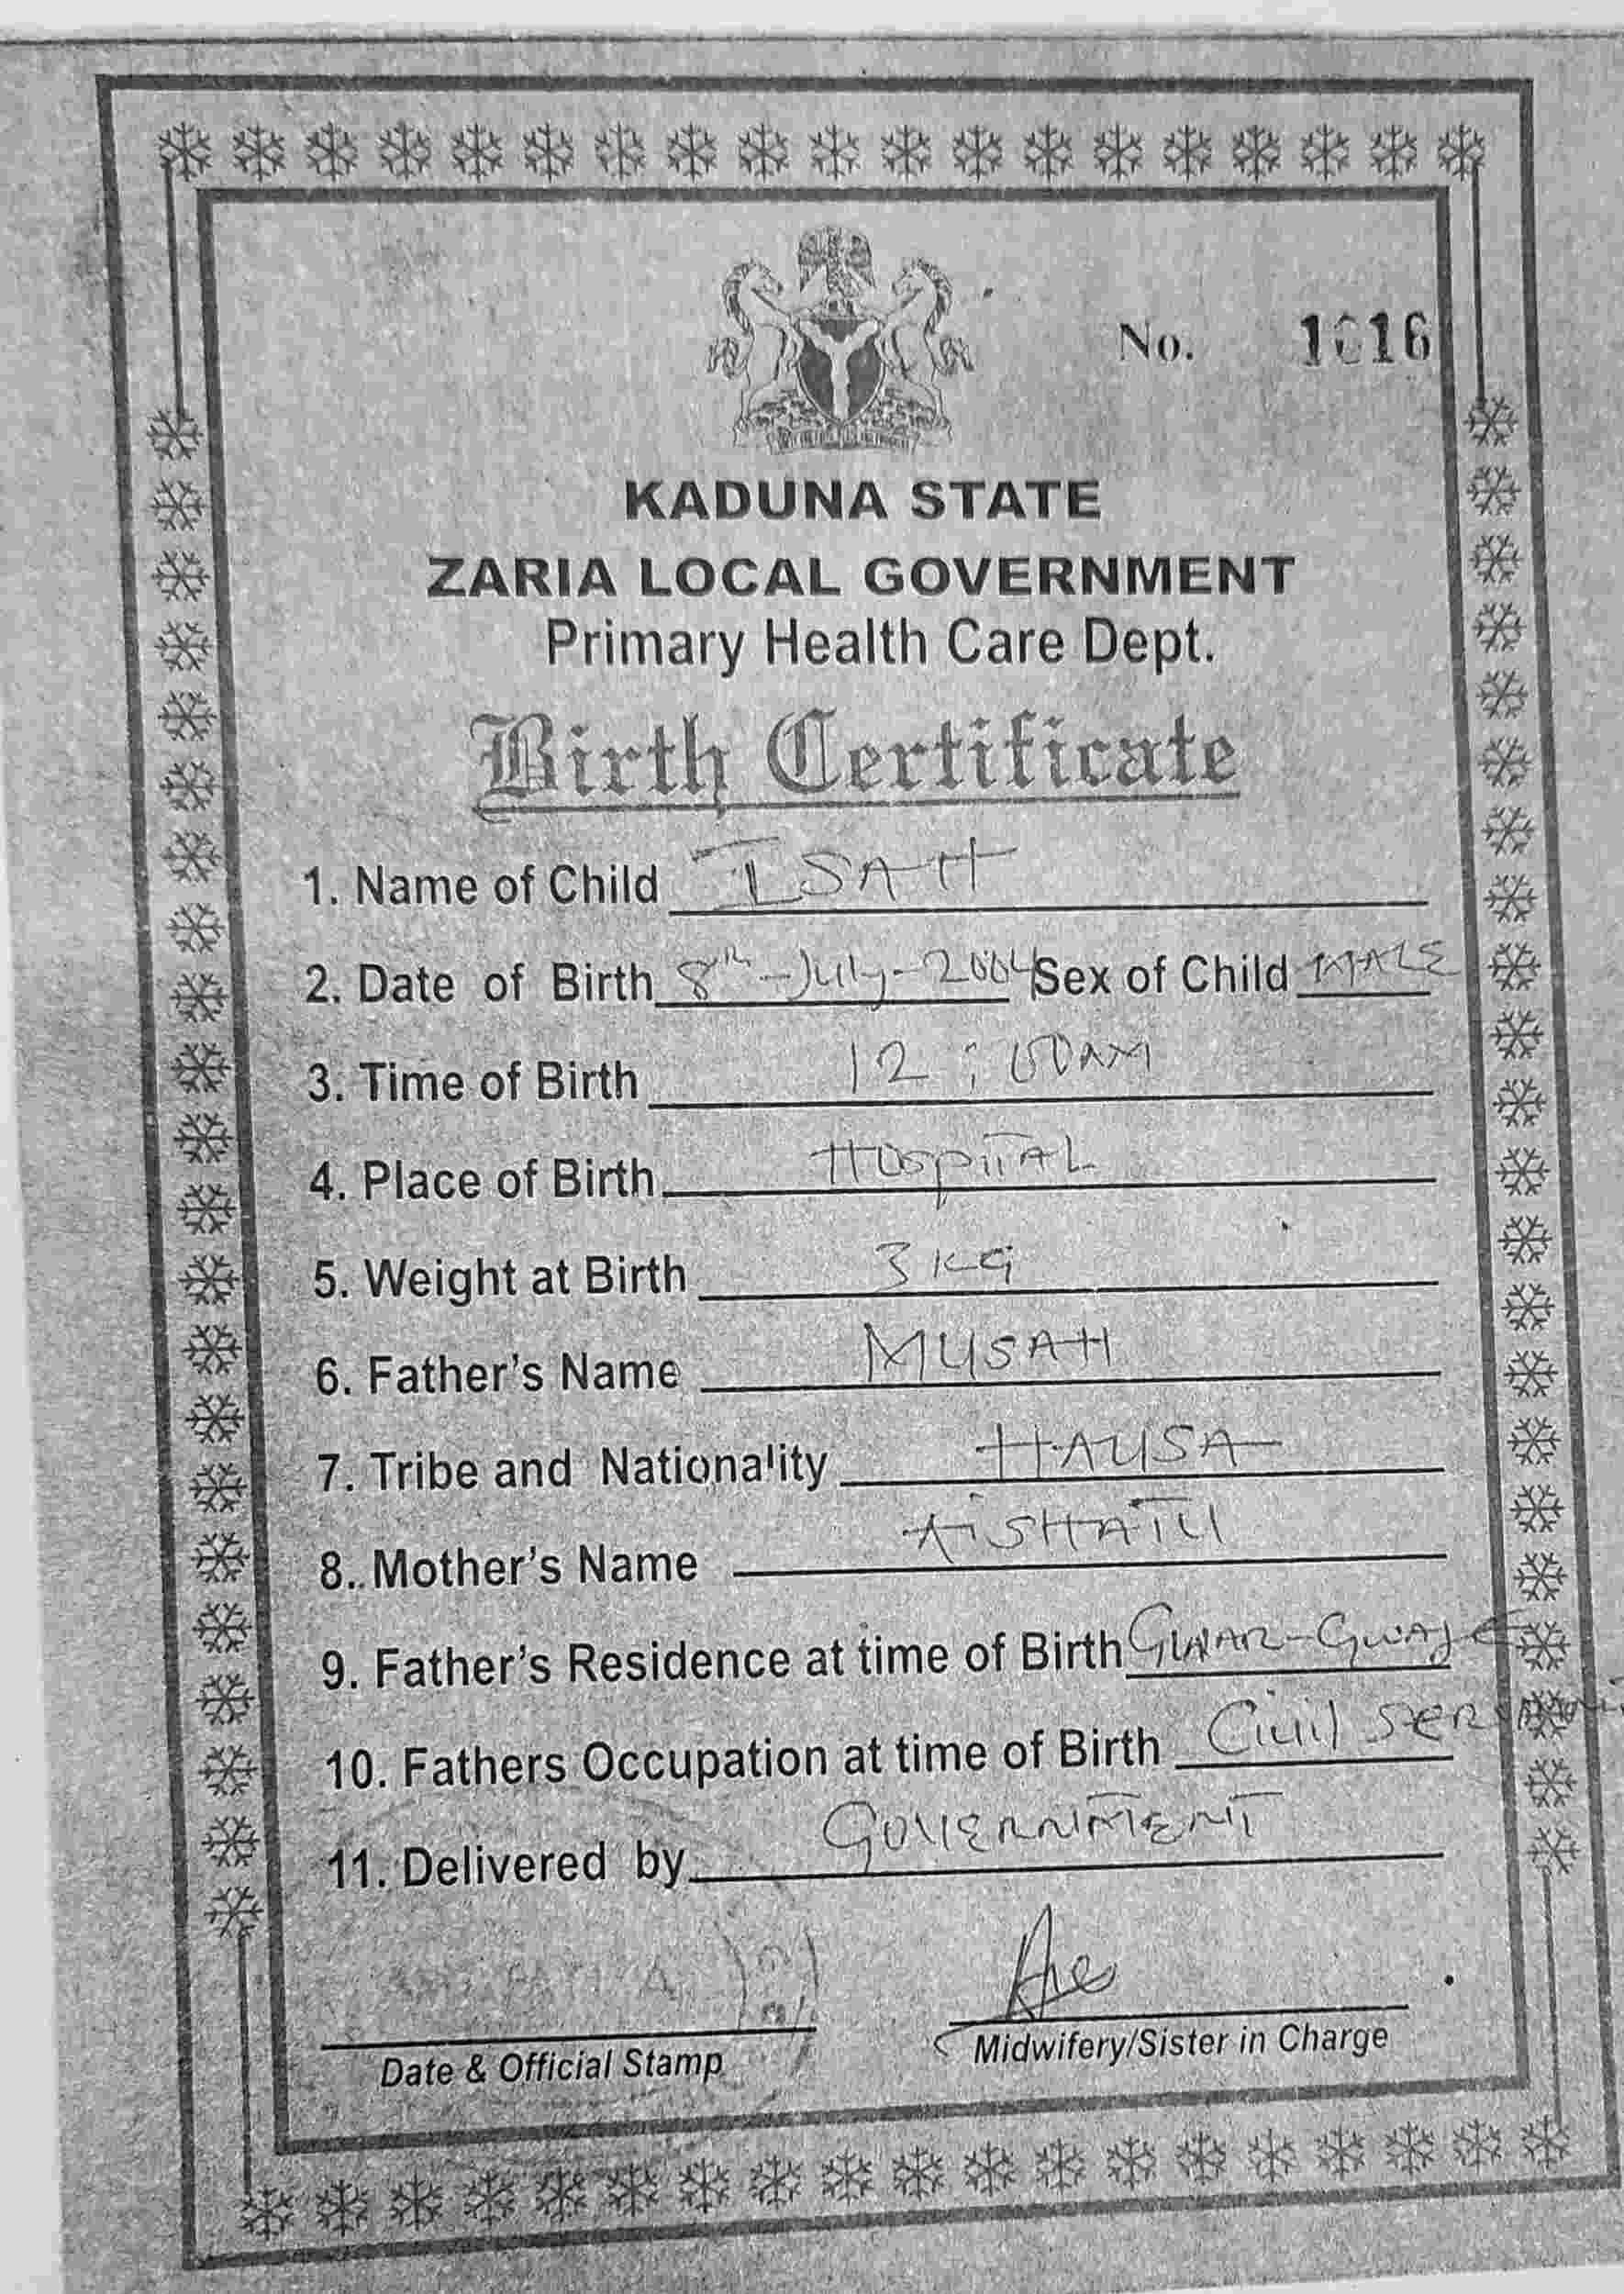 No. 1016
KADUNA STATE
ZARIA LOCAL GOVERNMENT
Primary Health Care Dept.
Birth Certificate
1. Name of Child ISAH
2. Date of Birth 8th-July-2004 Sex of Child MALE
3. Time of Birth 12:00AM
4. Place of Birth HospiTAL
5. Weight at Birth 3KG
6. Father's Name MUSAH
7. Tribe and Nationality HAUSA
8. Mother's Name AiSHATU
9. Father's Residence at time of Birth GWAR-GWAJE
10. Fathers Occupation at time of Birth Civil SERVANT
11. Delivered by GOVERNMENT
Date & Official Stamp
Midwifery/Sister in Charge